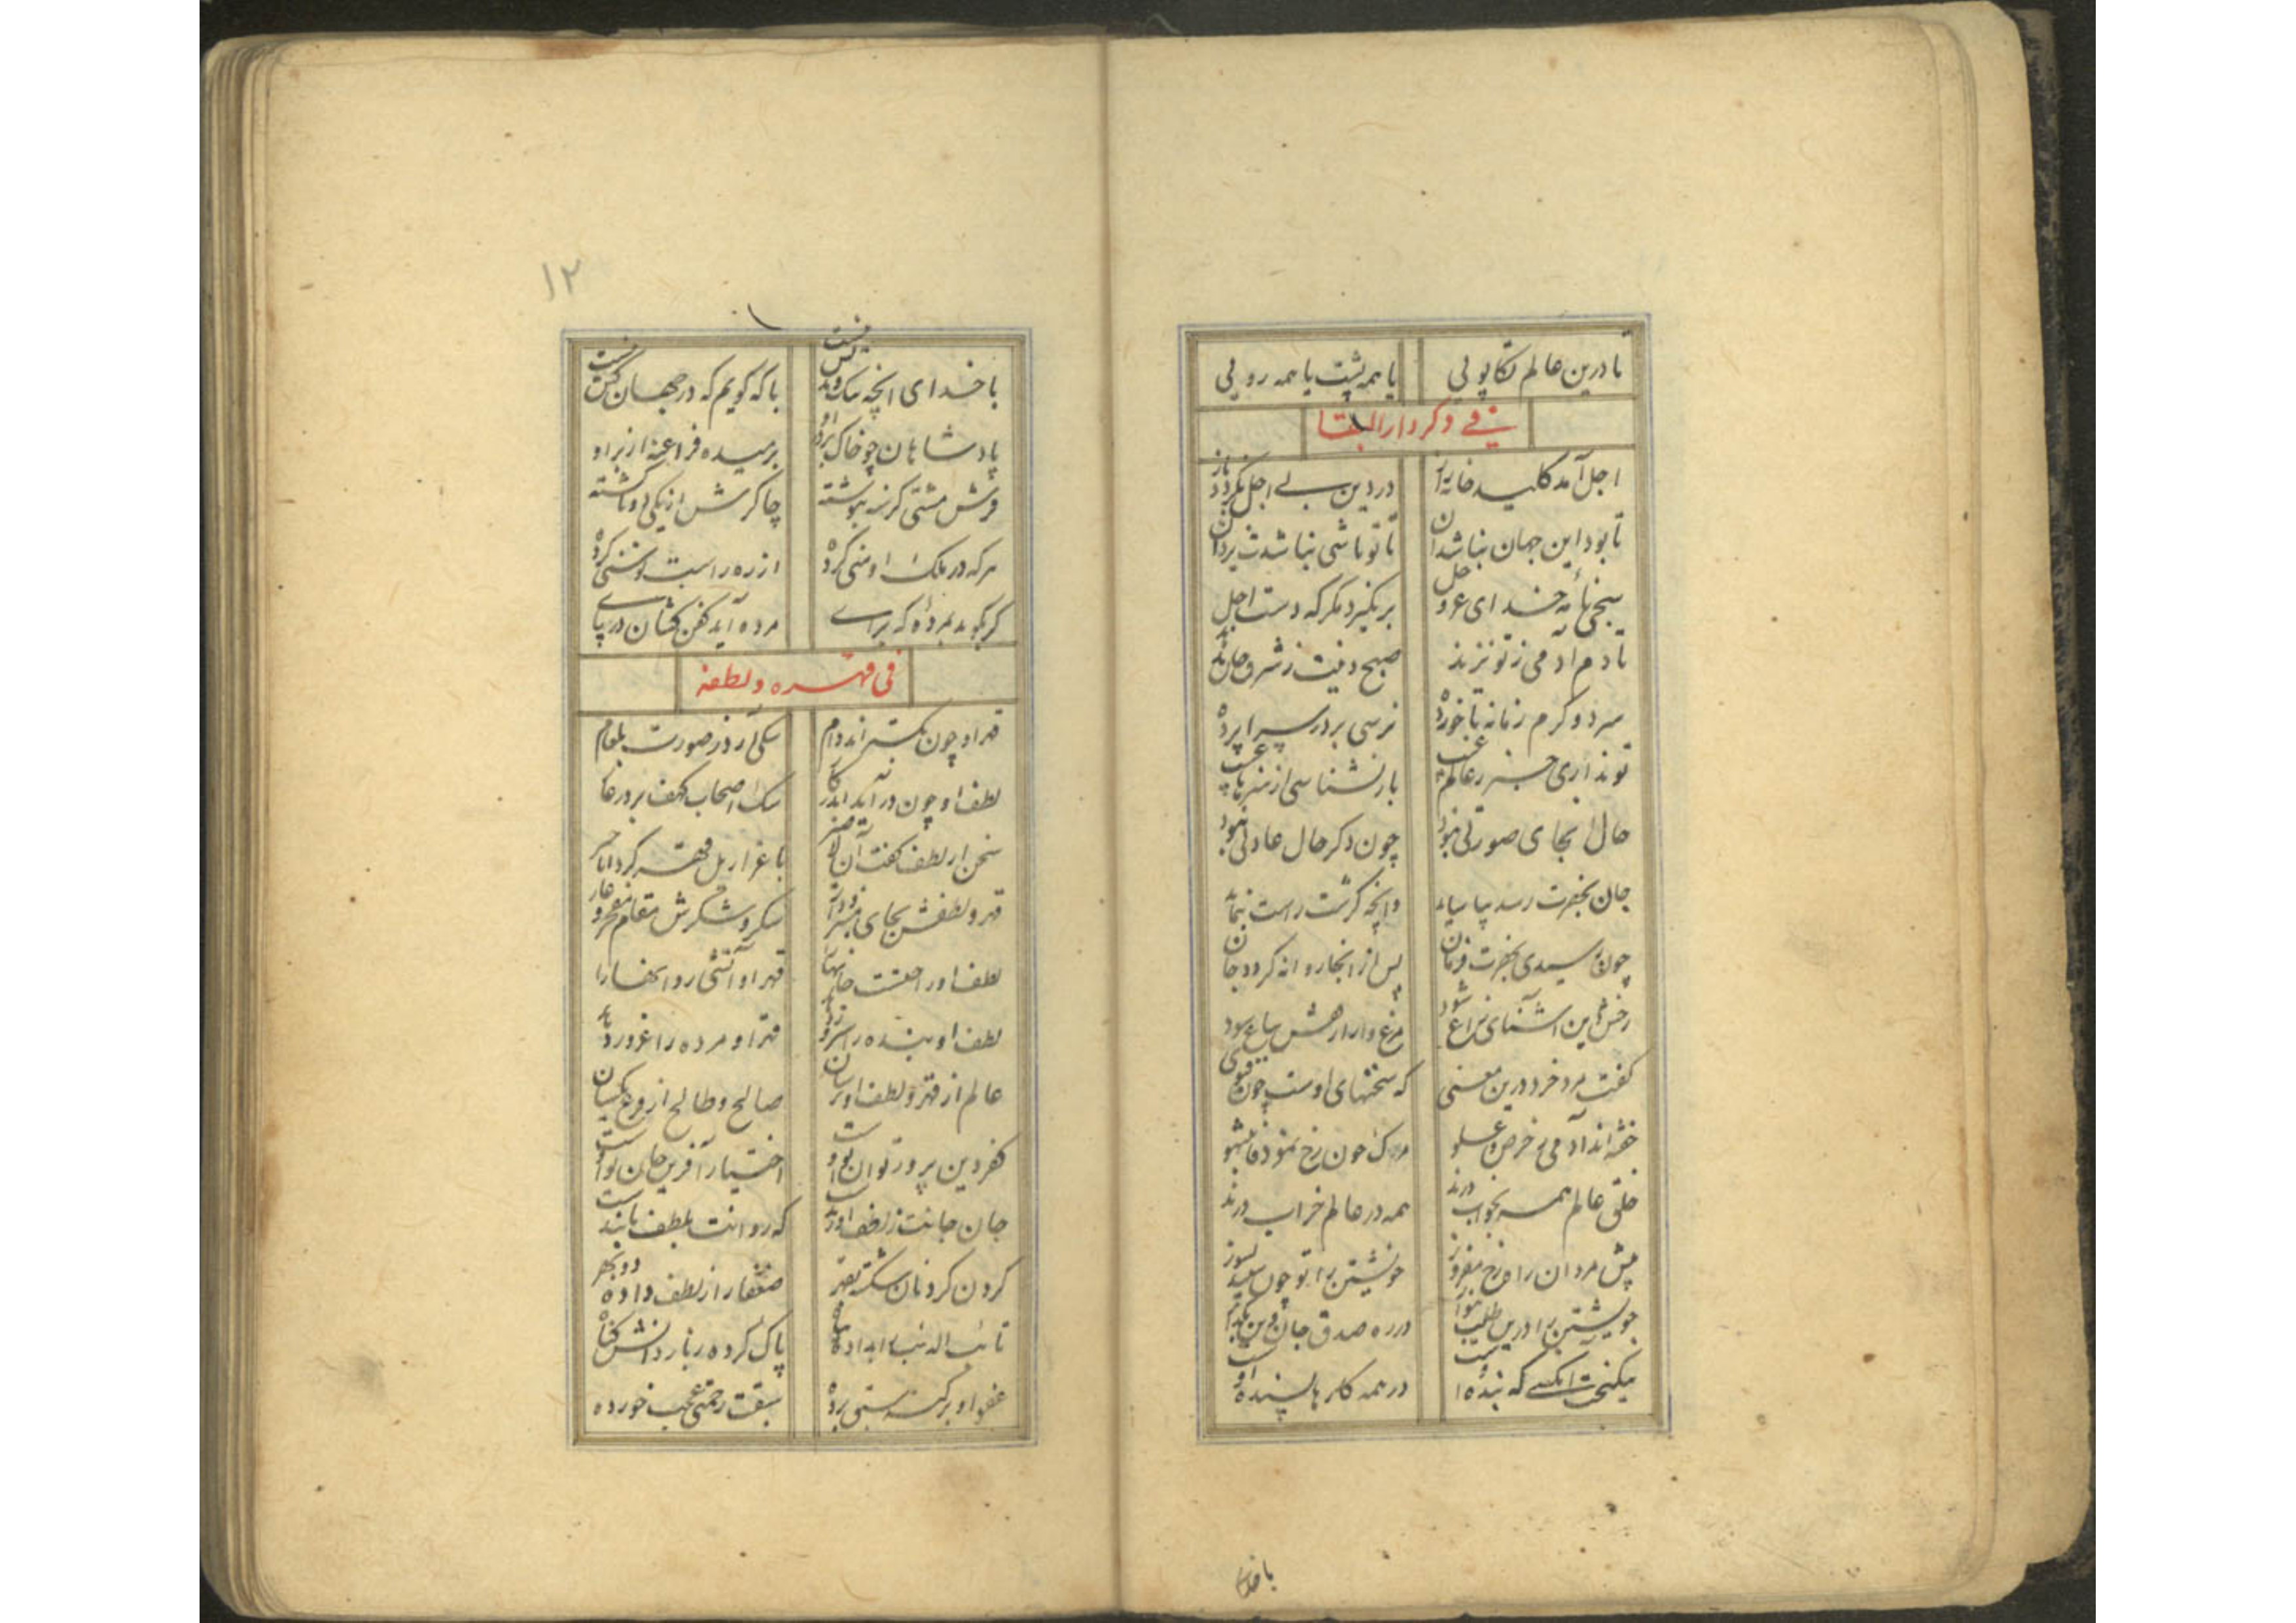 تا درین عالم تکاپویی یا همه پشت یا همه رویی
فی ذکر دار البقا
اجل آمد کلید خانه راز در دین بی اجل نگردد باز
تا بود این جهان نباشد آن تا تو باشی نباشدت یزدان
خدای عز و جل بر نگیرد مگر که دست اجل
تا دم آدمی ز تو نرمد صبح دینت ز شرق جان ندمد
سرد و گرم زمانه ناخورده نرسی بر در سراپرده
تو نداری خبر ز عالم غیب باز نشناسی از هنرها عیب
حال آنجای صورتی نبود چون دگر حال عادتی نبود
جان بحضرت رسد بیاساید وانچه کژست راست بنماید
چون رسیدی بحضرت فرمان پس از انجا روانه گردد جان
رخش دین آشنای راغ شود مرغ وار از سوی باغ شود
گفت مرد خرد درین معنی که سخنهای اوست چون فتوی
خفته اند آدمی ز حرص و غلو مرگ چون رخ نمود فانتبهوا
خلق عالم همه بخواب درند همه در عالم خراب درند
پیش مردان راه رخ مفروز خویشتن را تو چون سپند بسوز
خویشتن را درین طلب در ره صدق جان و دین
نیکبخت آنکسی که بنده اوست در همه کارها بسنده اوست
با خدای
۱۲
با خدای آنچه نیک و بد کس نیست با که گویم که در جهان کس نیست
پادشاهان چو خاک بر در او برمیده فراعنه از بر او
فرش مشتی گرسنه نبوشته چاکرش از یکی دو تا گشته
هر که در ملک او منی کرده از ره راست توسنی کرده
گر بگوید بمرده که برای مرده آید کفن کشان در پای
فی قهره و لطفه
قهر او چون بگستراند دام سگی آرد ز صورت بلعام
لطف او چون در آید اندر کار سگ اصحاب کهف بر در غار
سخن از لطف گفت آن لا ضیر با عزازیل قهر کرد انا خیر
لطف او راحتست جانها را قهر او آتشی روانها را
لطف او بنده را سرور دهد قهر او مرده را غرور دهد
عالم از قهر و لطف او ترسان صالح و طالح از یکسان
کفر و دین پرور توان تو اوست اختیار آفرین جان تو اوست
جان جانت ز لطف او زندست که روانت بلطف پایندست
گردن گردنان شکسته بقهر ضعفا را ز لطف داده دو بهر
پاک کرده
عفو او بر گنه سبق برده سبقت رحمتی عجب خورده